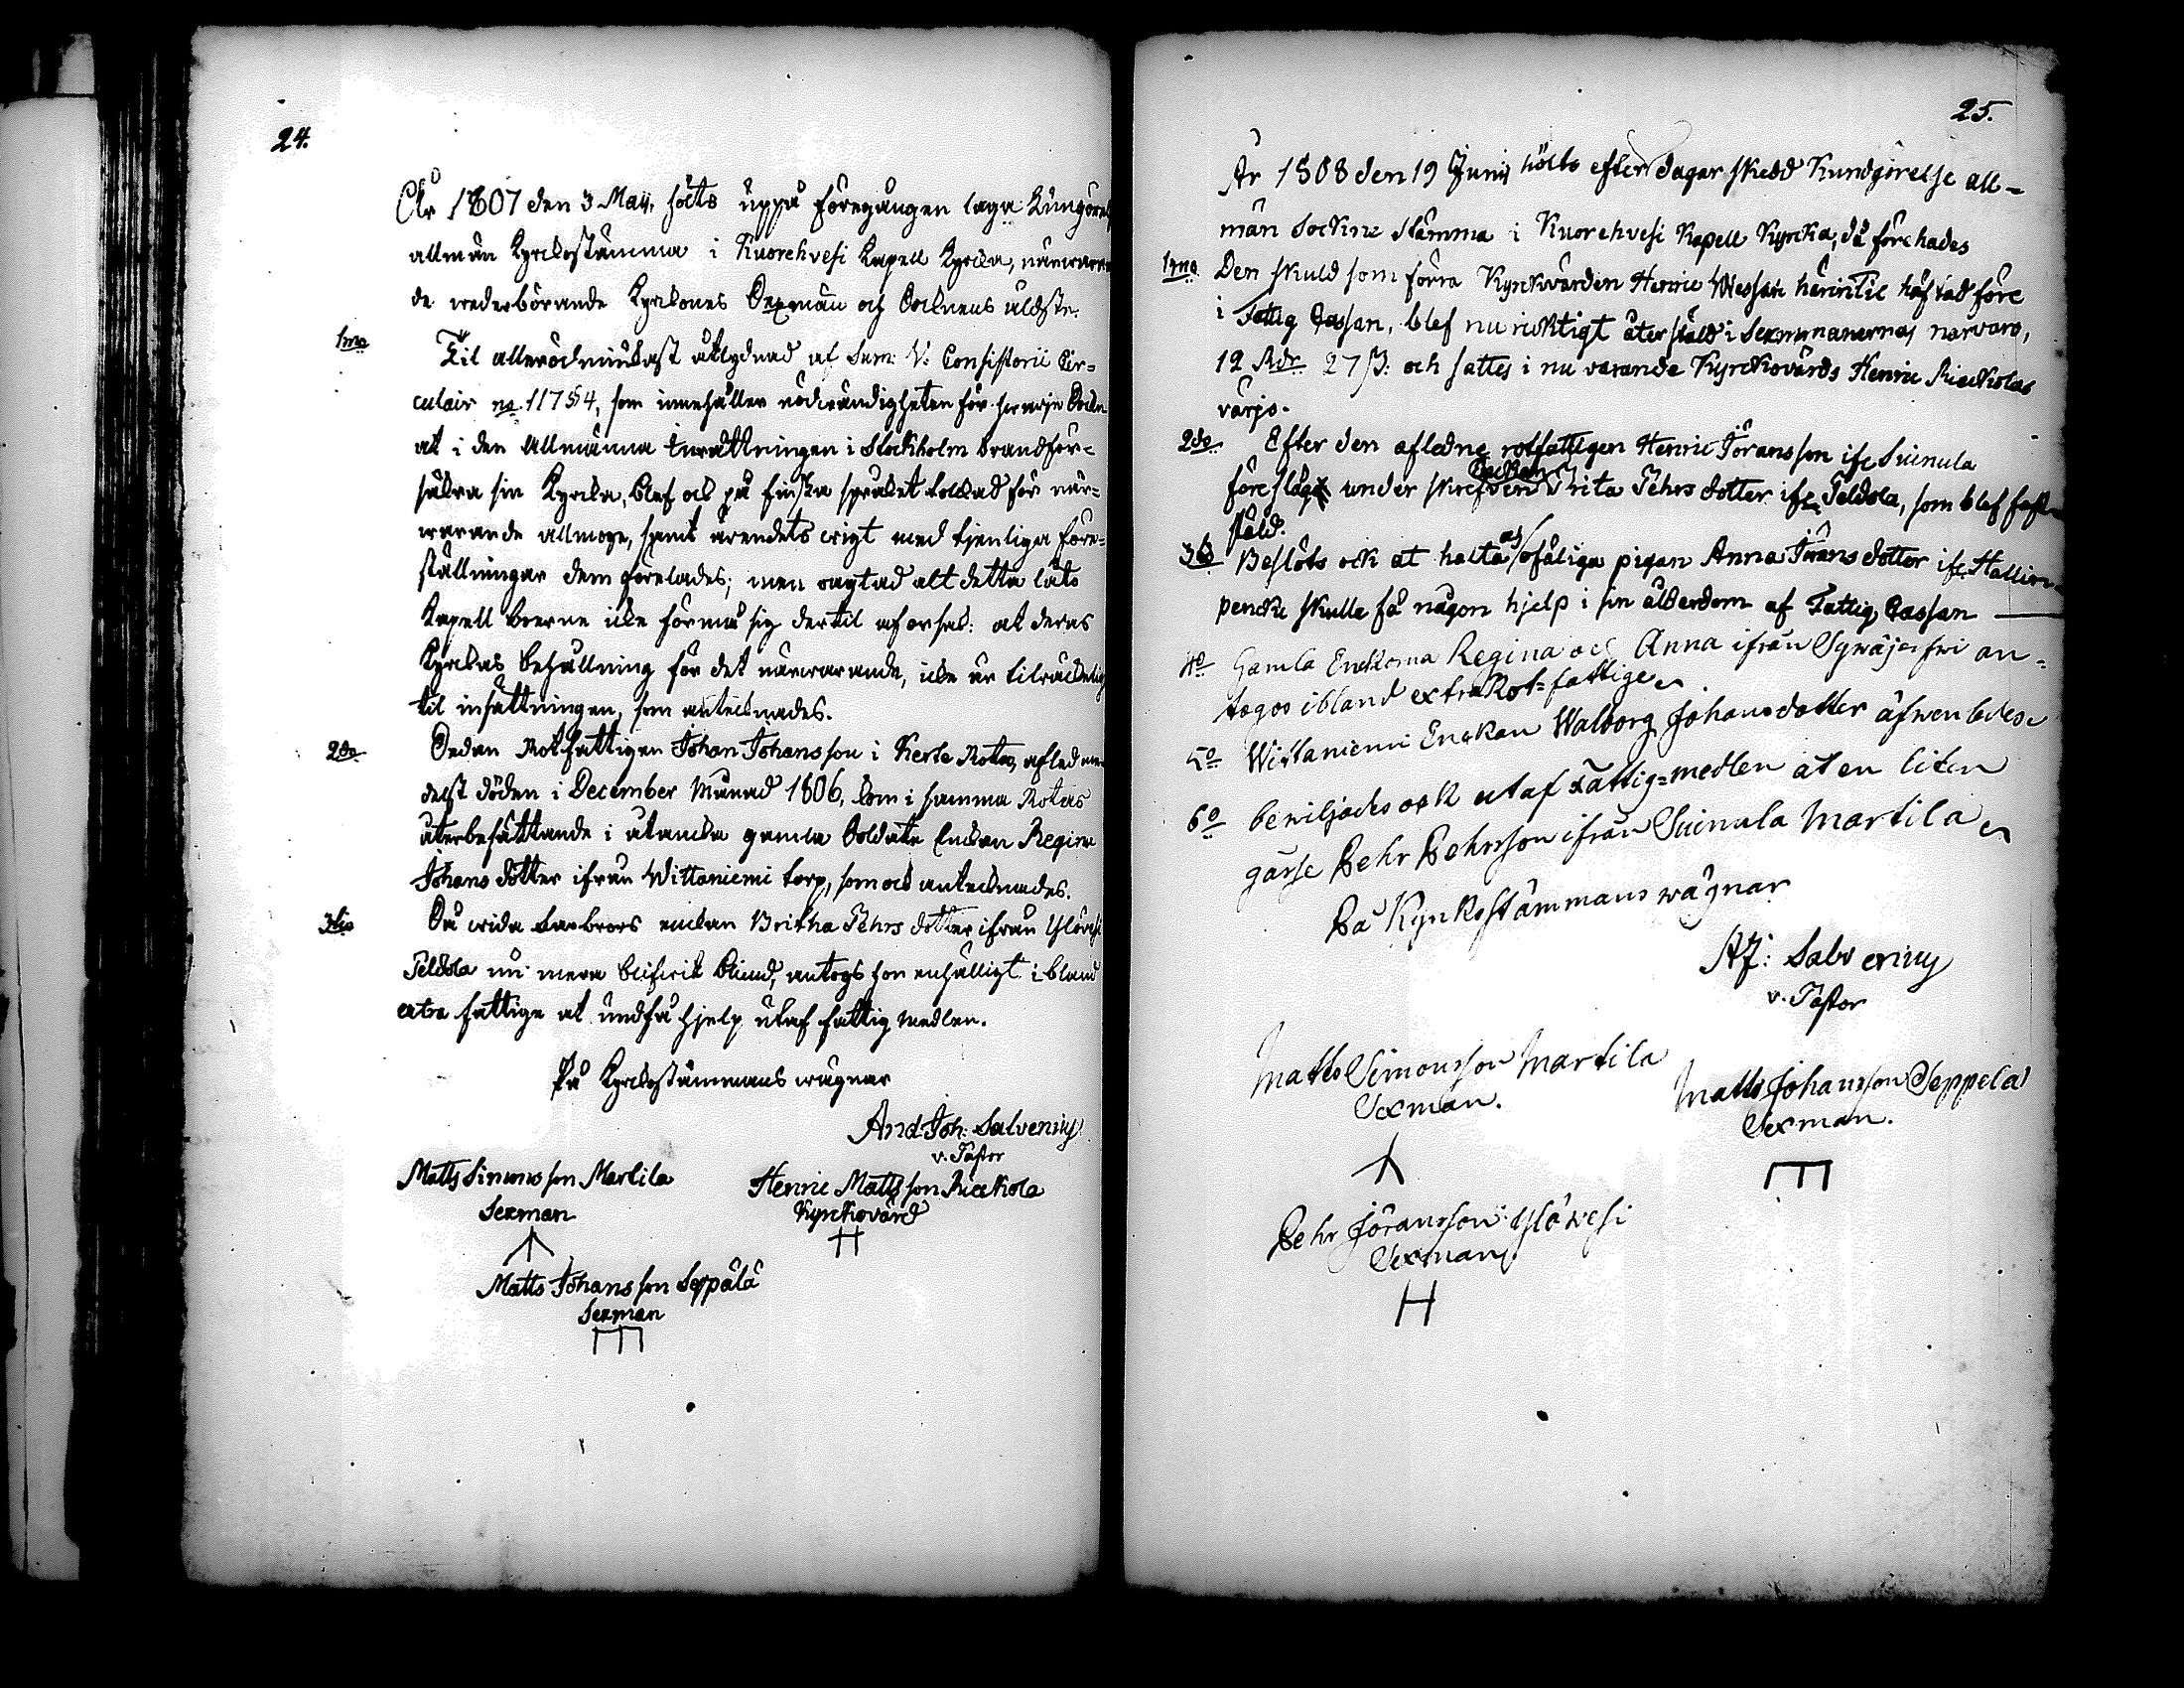 24.
År 1807 den 3 Maji, hölts uppå föregången laga Kungörels
allmän Kyrckostämma i Kuorehvesi Kapell Kyrcka, närwaran
de wederbörande Kyrckones Sexmän och Socknens äldste.
1mo Til allerödmiukast åtlydnad af Sum: V: Consistorii Cir=
culair no. 117 § 4, som innehåller nödwändigheten för hwarje Sockn
at i den Allmänna Inrättningen i Stockholm brandför=
säkra sin Kyrcka, blef ock på finska språket tolckad för när=
warande allmoge, samt ärendets wigt med tjenliga före=
ställningar dem förelades; men oagtad alt detta läto
Kapell boerne icke förmå sig dertil af orsak: at deras
Kyrckas behållning för det närwarande, icke är tilräckelig
til insättningen, som antecknades.
2do Sedan Rotfattigen Johan Johansson i Kerte Rota, afled me-
delst döden i December Månad 1806, kom i samma Rotas
återbesättande i åtancka gamla Soldats Enckan Regina
Johans dotter ifrån Wittaniemi torp, som ock antecknades.
3tio Då wida enckan Britha Pehrs dotter ifrån Ylöwesi
Peldola nu mera blifwit blind, antogs hon enhälligt i bland
extra fattige at undfå hjelp utaf fattig medlen.
På Kyrckostämmans wägnar
And Joh: Salvenius
v. Pastor
Matts Simonsson Martila
Sexman
Henric Mattsson Rieckola
Kyrckovärd
Matts Johansson Seppälä
Sexman
25.
År 1808 den 19 Junii hölts efter dagar skedd Kundgörelse all=
män Sockne stämma i Kuorehvesi Kapell Kyrcka, då förehades
1mo Den skuld som förra Kyrckvärden Henric Wessari härintil häftad före
i Fattig Cassan, blef nu ricktigt återstäld i Sexmmänernas närvaro,
12 Rdr 27 ß: och sattes i nu varande Kyrckovärds Henric Rieckolas
värjo.
2do Efter den afledne rotfattigen Henric Jöransson ifr. Suinula
föreslogs under skrefven Enckan Brita Pehrs dotter ifr. Peldola, som blef fast-
stäld.
3ti Beslöts ock at halta och ofäliga pigan Anna Jörans dotter ifr. Hallin
pencki skulle få någon hjelp i sin ålderdom af Fattig Cassan
4o Gamla Enckorna Regina och Anna ifrån Sywäjerfwi an=
togos ibland extra Rot=fattige
5o Wittaniemi Enckan Walborg Johansdotter äfwenledes
6o bewiljades ock utaf Fattig=medlen åt en liten
gåsse Pehr Pehrsson ifrån Suinula Martila
På Kyrkostämmans wägnar
AJ: Salvenius
v. Pastor
Matts Simonsson Martila
Sexman.
Matts Johansson Seppelä
Sexman.
Pehr Jöransson Ylöwesi
Sexman.